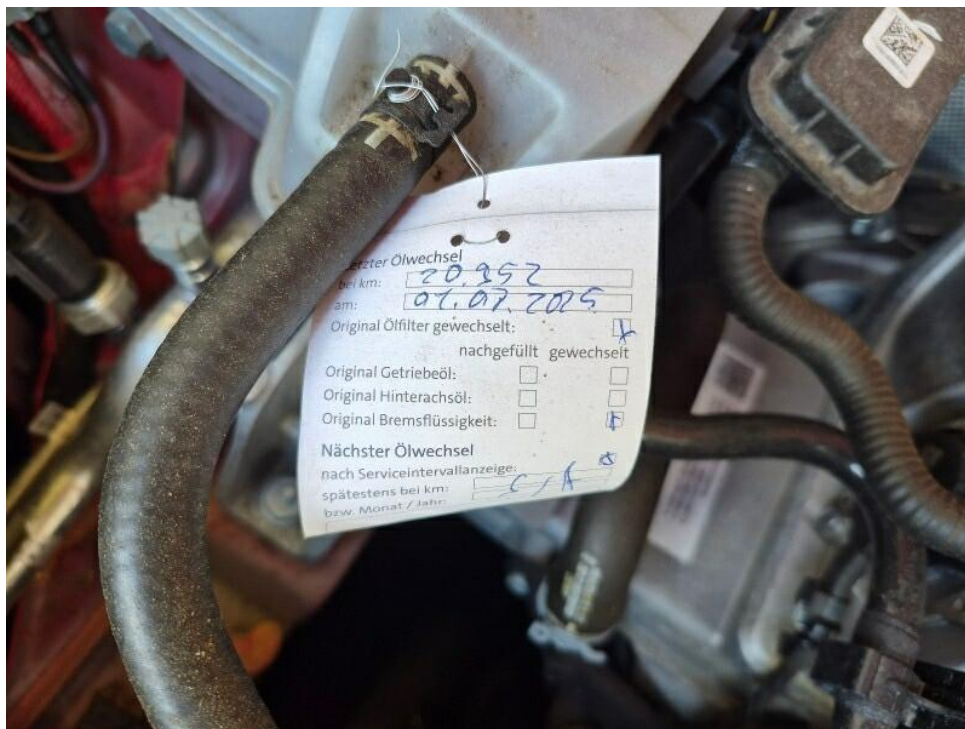 Letzter Ölwechsel
bei km: 20.952
am: 01.07.2025
Original Ölfilter gewechselt:
nachgefüllt gewechselt
Original Getriebeöl:
Original Hinterachsöl:
Original Bremsflüssigkeit:
Nächster Ölwechsel
nach Serviceintervallanzeige:
spätestens bei km:
bzw. Monat / Jahr: